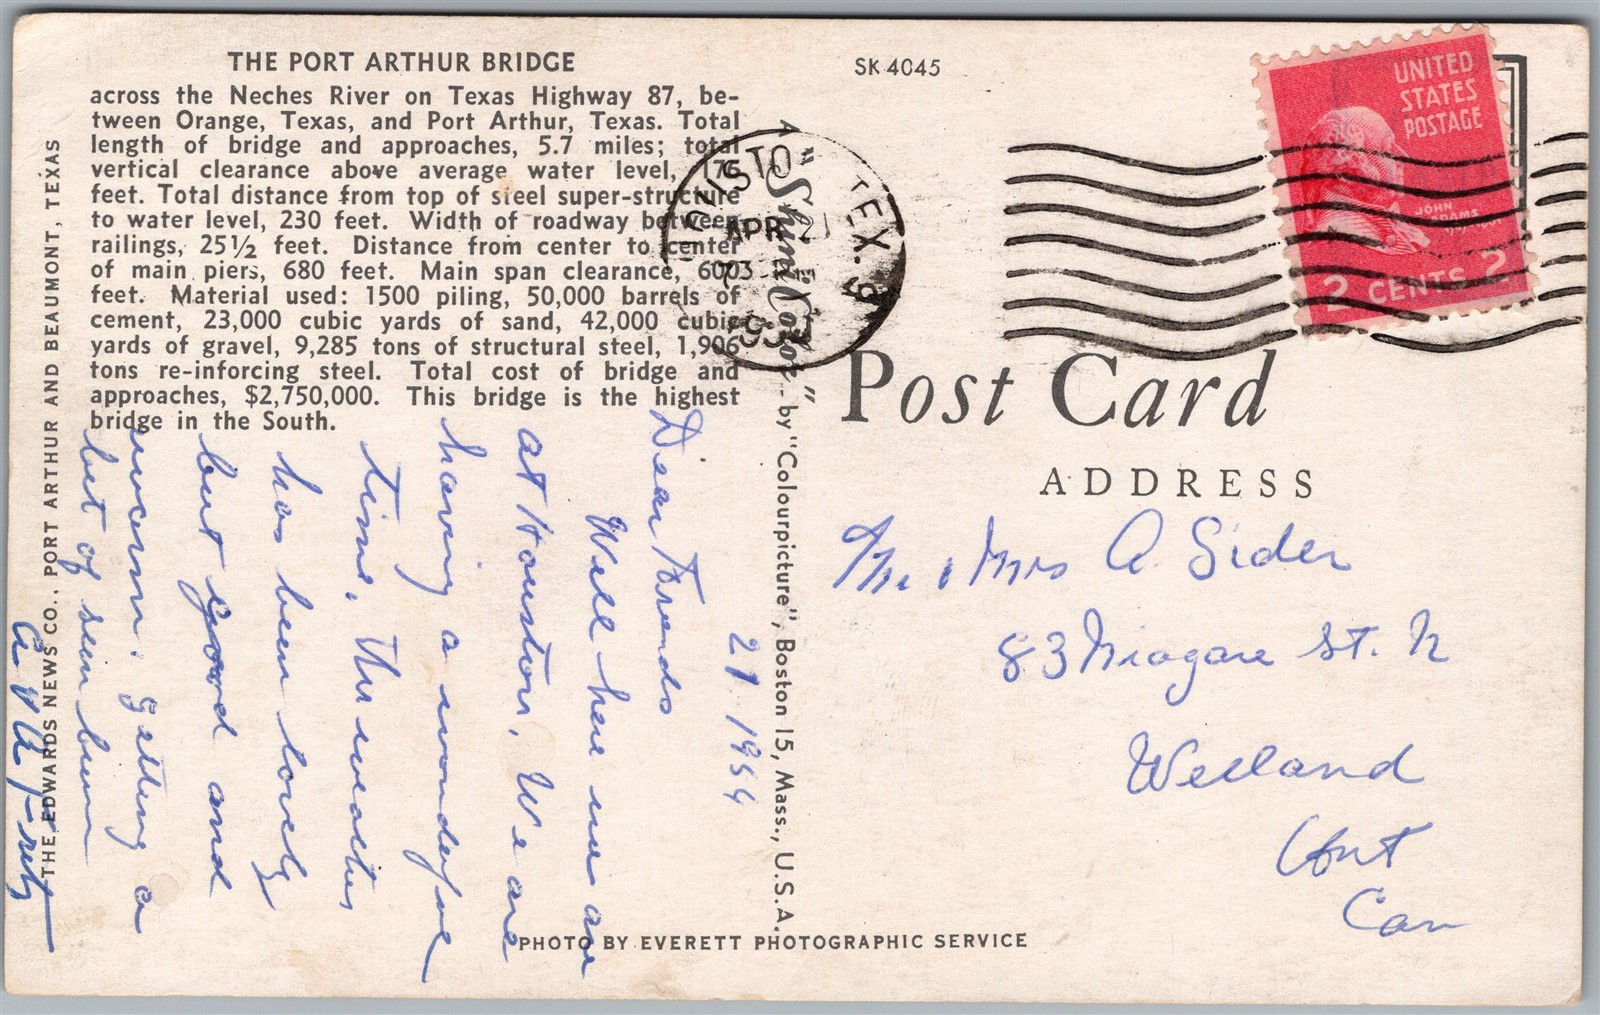 THE PORT ARTHUR BRIDGE
across the Neches River on Texas Highway 87, be-
tween Orange, Texas, and Port Arthur, Texas. Total
length of bridge and approaches, 5.7 miles; total
vertical clearance above average water level, 176
feet. Total distance from top of steel super-structure
to water level, 230 feet. Width of roadway between
railings, 25½ feet. Distance from center to center
of main piers, 680 feet. Main span clearance, 600
feet. Material used: 1500 piling, 50,000 barrels of
cement, 23,000 cubic yards of sand, 42,000 cubic
yards of gravel, 9,285 tons of structural steel, 1,906
tons re-inforcing steel. Total cost of bridge and
approaches, $2,750,000. This bridge is the highest
bridge in the South.
THE EDWARDS NEWS CO., PORT ARTHUR AND BEAUMONT, TEXAS
21 1954
Dear Friends
Well here we are
at Houston. We are
having a wonderful
time. The weather
has been lovely
but good and
warm. getting a
bit of sun burn
A "Shini Color" - by "Colourpicture", Boston 15, Mass., U.S.A.
PHOTO BY EVERETT PHOTOGRAPHIC SERVICE
SK 4045
TEX.
APR 21
UNITED
STATES
POSTAGE
JOHN
ADAMS
2 CENTS 2
Post Card
ADDRESS
Mr & Mrs A. Sider
83 Niagara St. N
Welland
Ont
Can